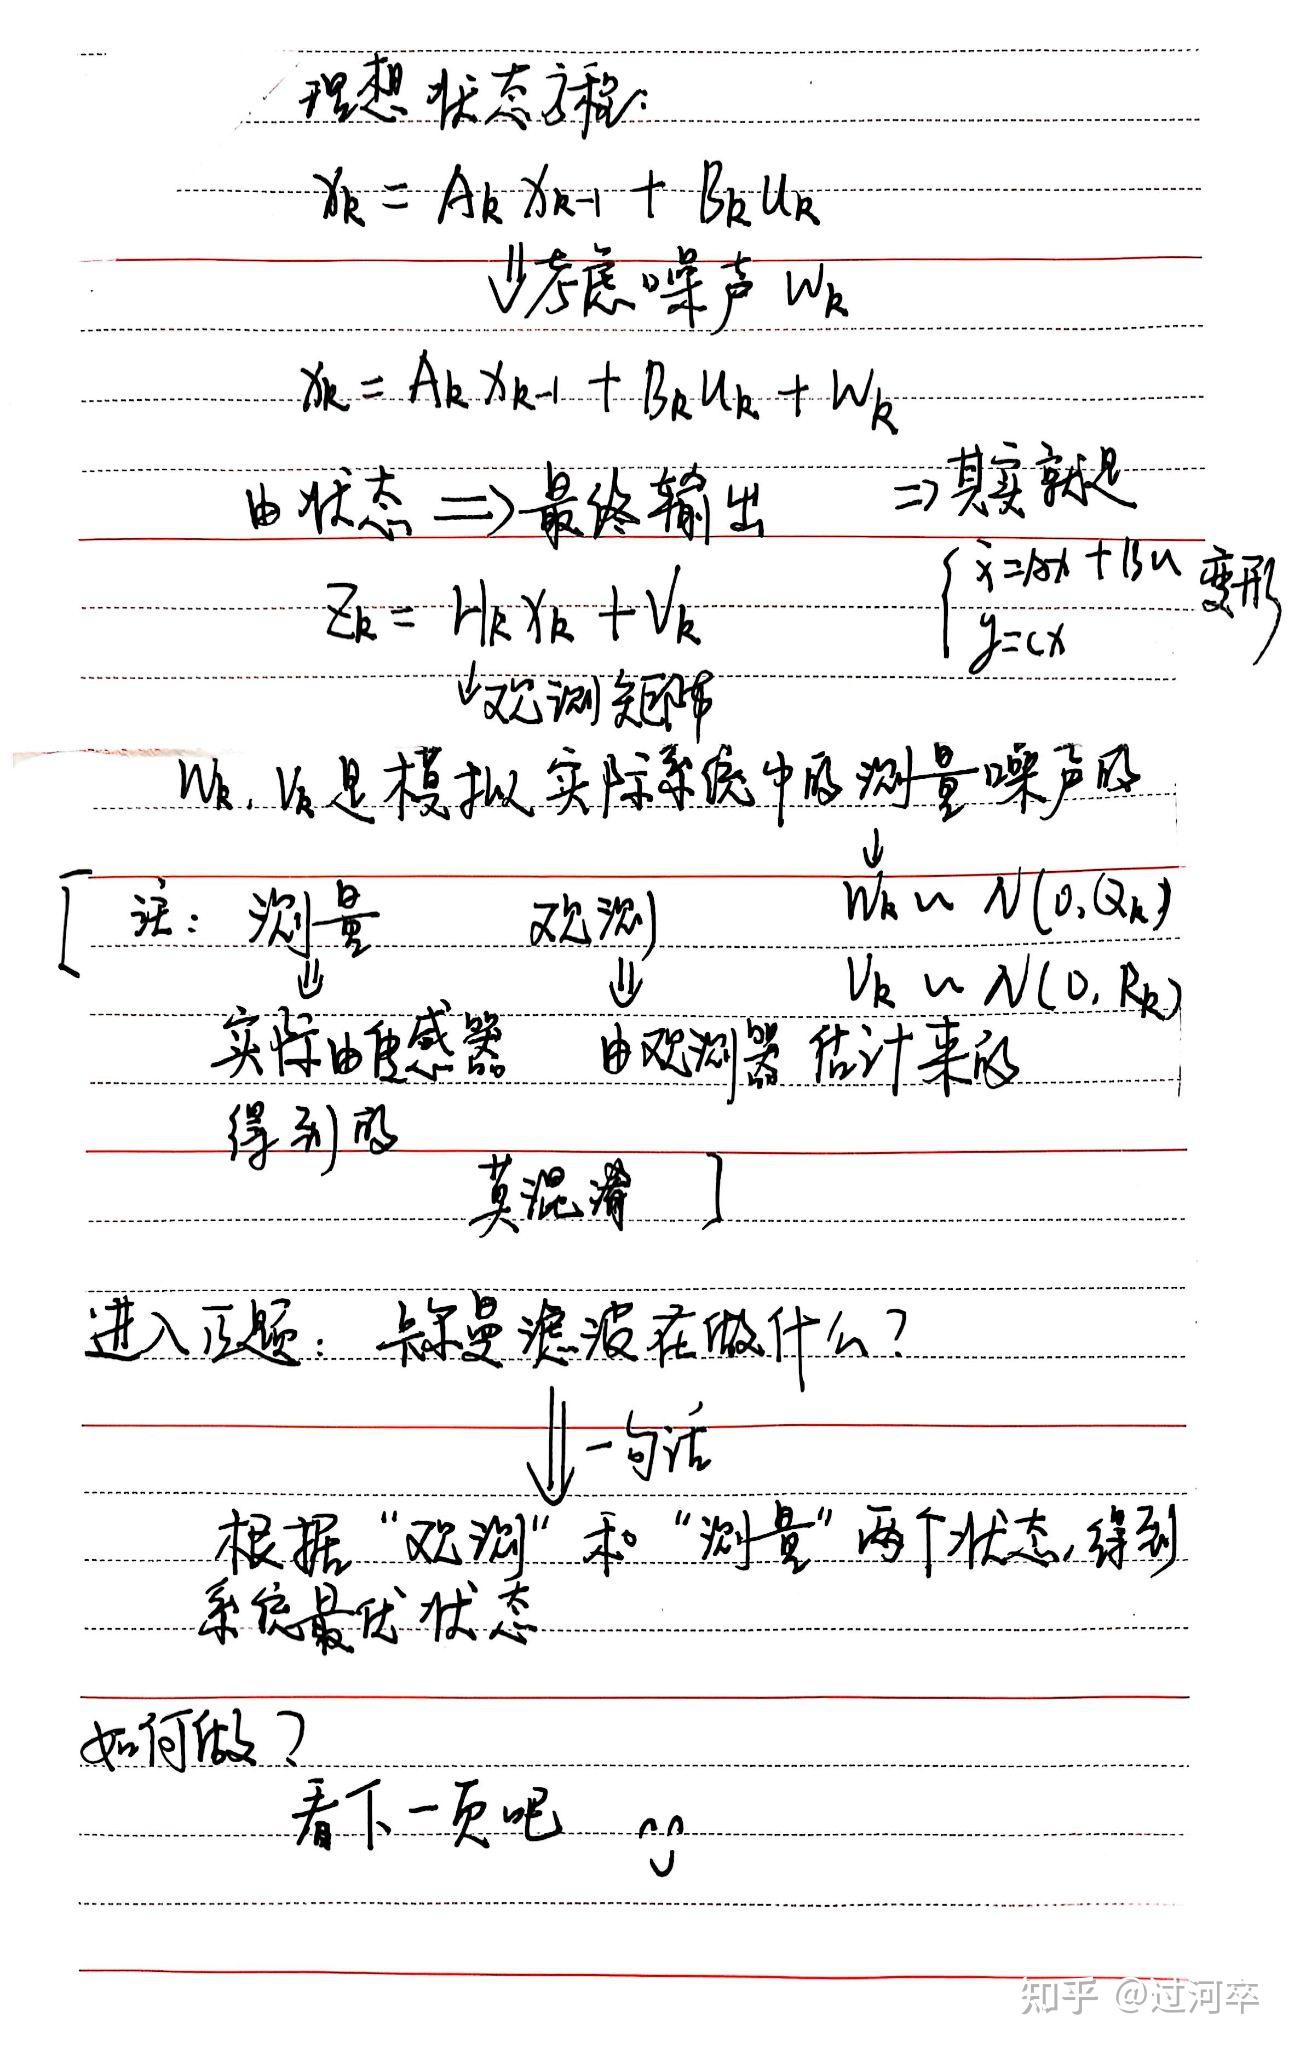 理想状态方程:
xk = Ak xk-1 + Bk uk
⇓ 考虑噪声 Wk
xk = Ak xk-1 + Bk uk + Wk
由状态 ⇒ 最终输出
⇒ 其实就是
{ ẋ=Ax+Bu
y=cx
变形
Zk = Hk xk + Vk
↓观测矩阵
Wk, Vk是模拟实际系统中的测量噪声的
↓
Wk ~ N(0, Qk)
Vk ~ N(0, Rk)
[ 注: 测量 观测
⇓ ⇓
实际由传感器 由观测器估计来的
得到的
莫混淆 ]
进入正题: 卡尔曼滤波在做什么?
⇓ 一句话
根据“观测”和“测量”两个状态,得到
系统最优状态
如何做?
看下一页吧
知乎 @过河卒